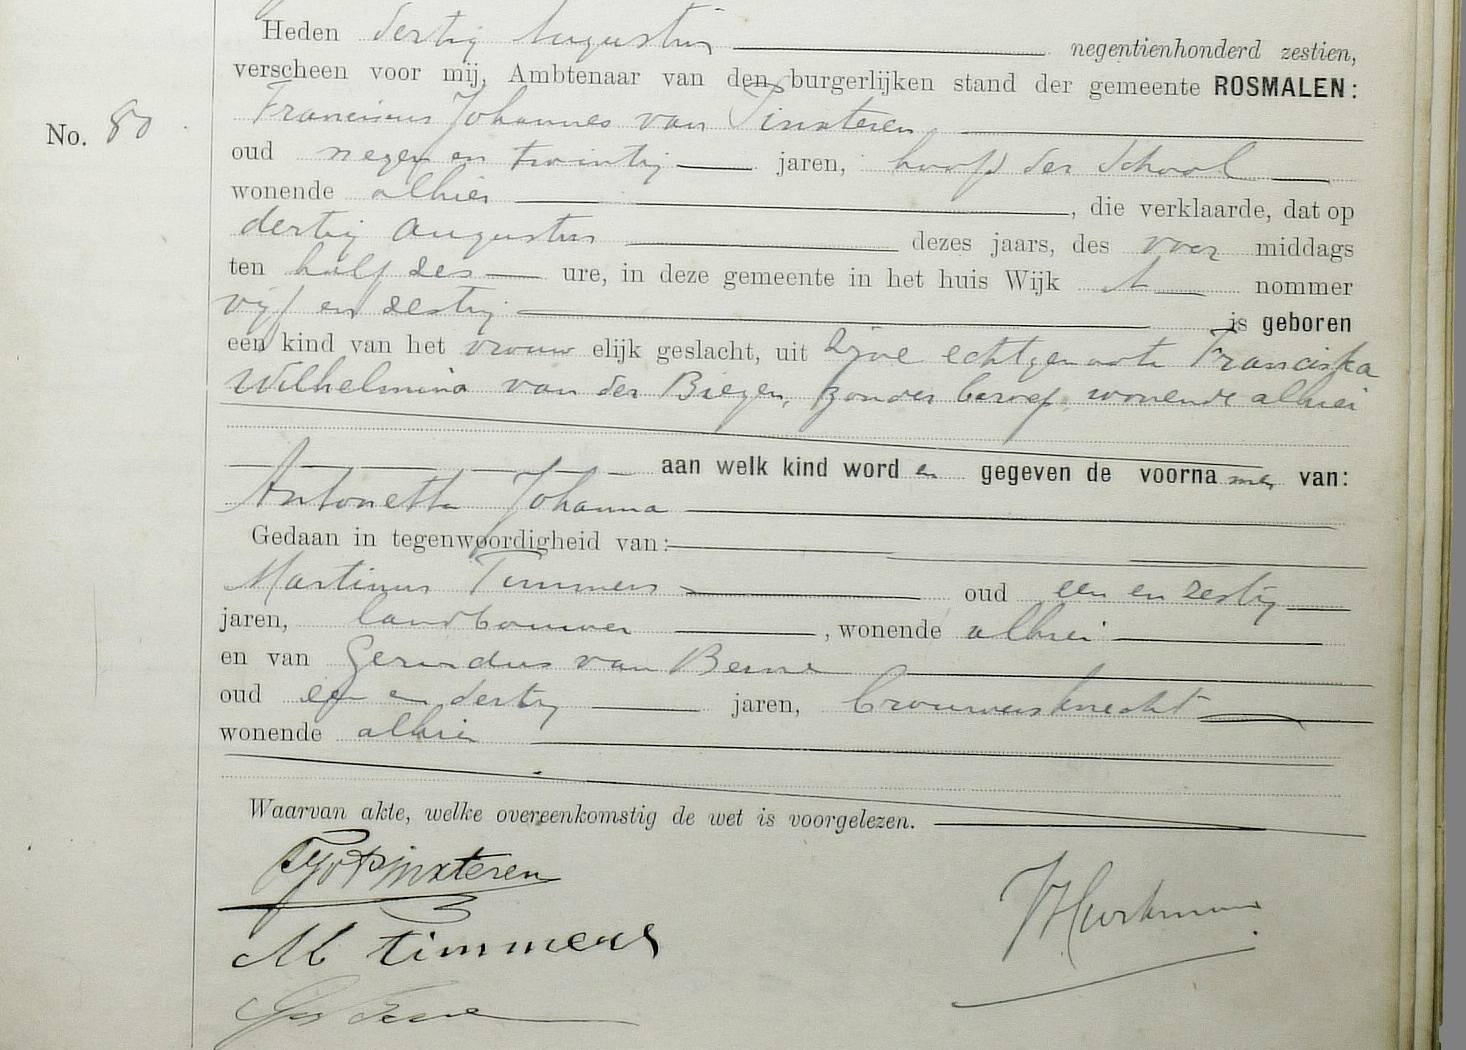 Heden dertig Augustus negentienhonderd zestien,
verscheen voor mij, Ambtenaar van den burgerlijken stand der gemeente ROSMALEN:
No. 80
Franciscus Johannes van Pinxteren,
oud negen en twintig jaren, hoofd der School
wonende alhier, die verklaarde, dat op
dertig Augustus dezes jaars, des voor middags
ten half zes ure, in deze gemeente in het huis Wijk A nommer
vijf en zestig is geboren
een kind van het vrouw elijk geslacht, uit zijne echtgenoote Franciska
Wilhelmina van der Biezen, zonder beroep, wonende alhier
aan welk kind word en gegeven de voorna men van:
Antonetta Johanna
Gedaan in tegenwoordigheid van:
Martinus Timmers oud een en zestig
jaren, landbouwer, wonende alhier
en van Gerardus van Berne
oud een en dertig jaren, brouwersknecht
wonende alhier
Waarvan akte, welke overeenkomstig de wet is voorgelezen.
Pinxteren
M Timmers